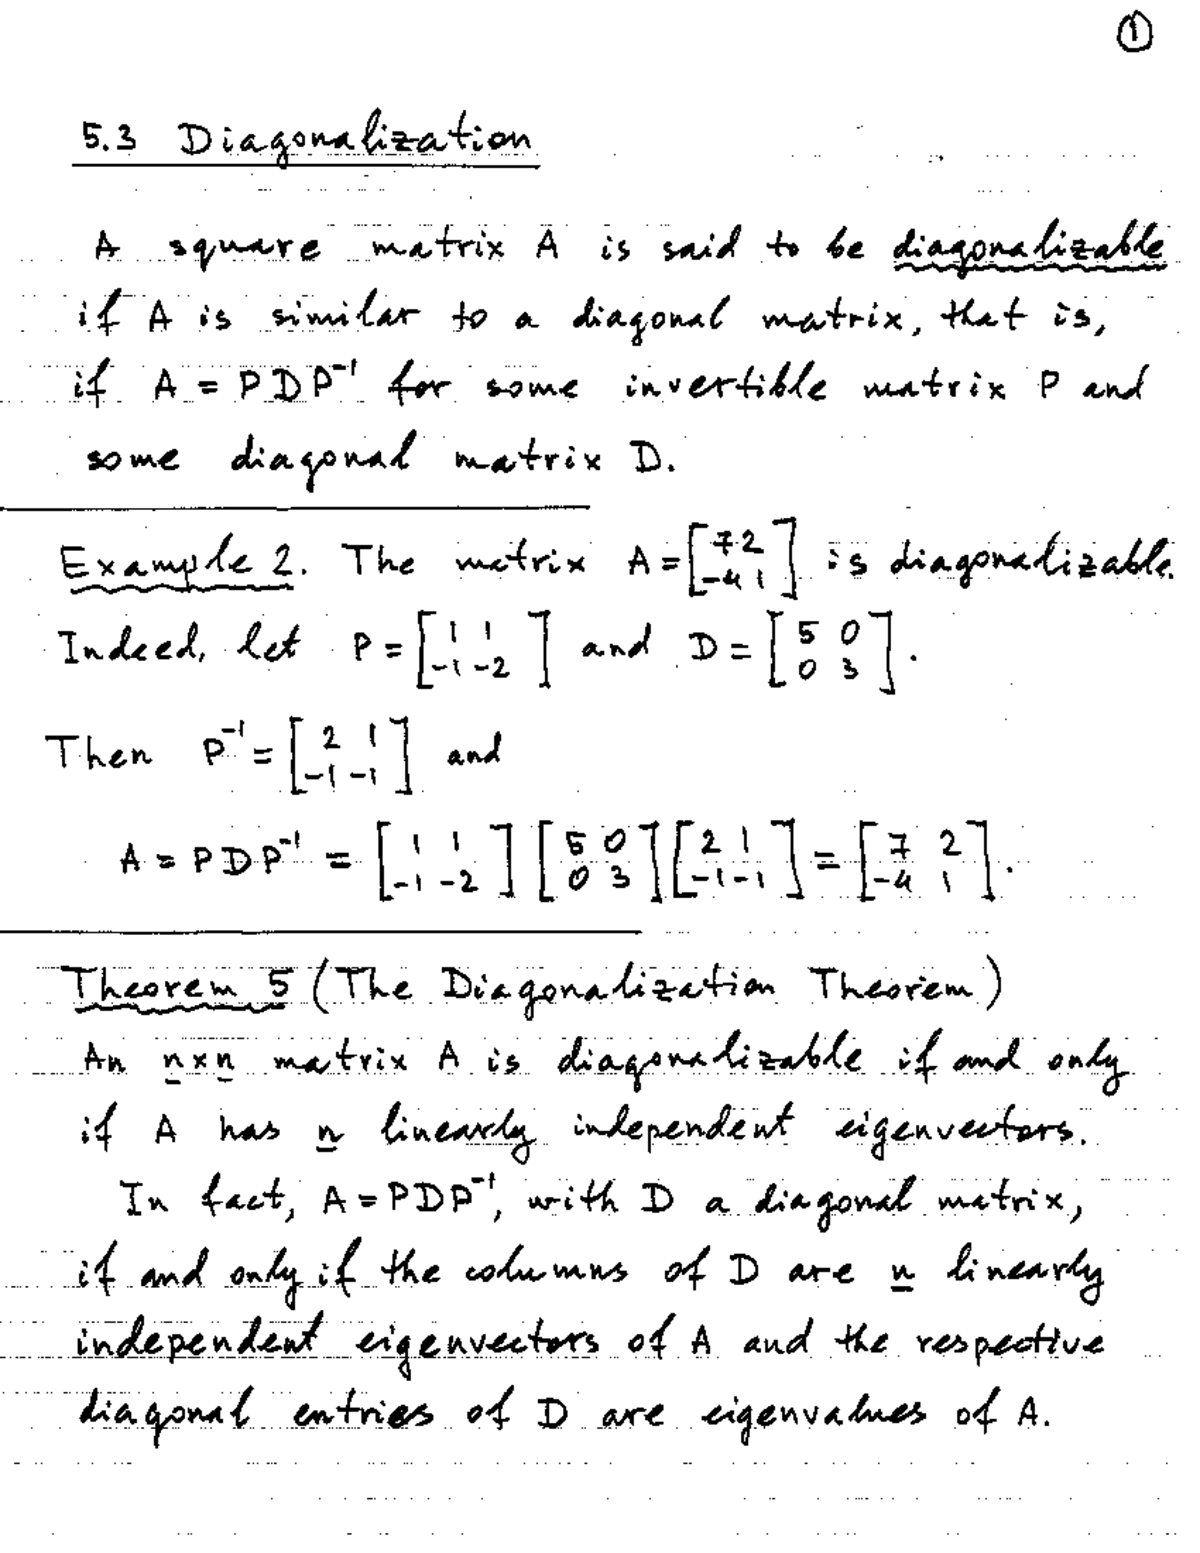 ①
5.3 Diagonalization
A square matrix A is said to be diagonalizable
if A is similar to a diagonal matrix, that is,
if A = PDP⁻¹ for some invertible matrix P and
some diagonal matrix D.
Example 2. The matrix A = [7 2; -4 1] is diagonalizable.
Indeed, let P = [1 1; -1 -2] and D = [5 0; 0 3].
Then P⁻¹ = [2 1; -1 -1] and
A = PDP⁻¹ = [1 1; -1 -2] [5 0; 0 3] [2 1; -1 -1] = [7 2; -4 1].
Theorem 5 (The Diagonalization Theorem)
An n×n matrix A is diagonalizable if and only
if A has n linearly independent eigenvectors.
In fact, A = PDP⁻¹, with D a diagonal matrix,
if and only if the columns of D are n linearly
independent eigenvectors of A and the respective
diagonal entries of D are eigenvalues of A.